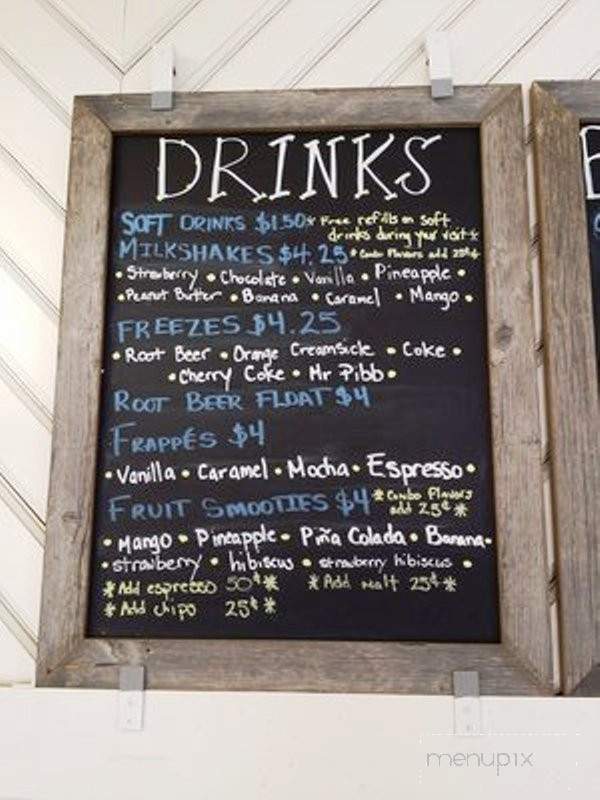 DRINKS
SOFT DRINKS $1.50 * Free refills on soft
drinks during your visit *
MILKSHAKES $4.25 * Combo Flavors add 25¢ *
• Strawberry • Chocolate • Vanilla • Pineapple •
• Peanut Butter • Banana • Caramel • Mango •
FREEZES $4.25
• Root Beer • Orange Creamsicle • Coke •
• Cherry Coke • Mr Pibb •
ROOT BEER FLOAT $4
FRAPPÉS $4
• Vanilla • Caramel • Mocha • Espresso •
FRUIT SMOOTIES $4 * Combo Flavors
add 25¢ *
• Mango • Pineapple • Piña Colada • Banana •
• strawberry • hibiscus • strawberry hibiscus •
* Add espresso 50¢ * * Add Malt 25¢ *
* Add chipo 25¢ *
menupix